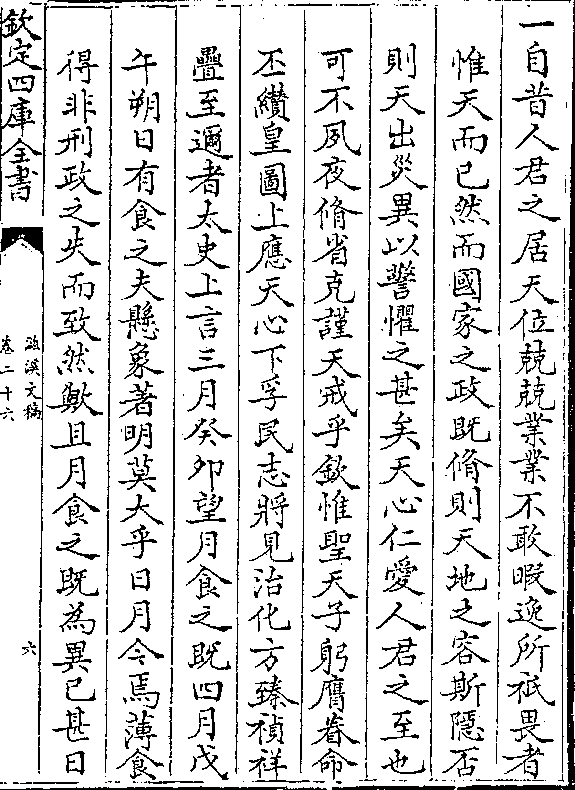 一自昔人君之居天位兢兢業業不敢暇逸所祗畏者
惟天而已然而國家之政既脩則天地之容斯隱否
則天出災異以警懼之甚矣天心仁愛人君之至也
可不夙夜脩省克謹天戒乎欽惟聖天子躬膺眷命
丕纘皇圖上應天心下孚民志將見治化方臻禎祥
疊至邇者太史上言三月癸卯望月食之既四月戊
午朔日有食之夫懸象著明莫大乎日月今焉薄食
得非刑政之失而致然歟且月食之既為異已甚日
欽定四庫全書
文稿
卷二十六
六